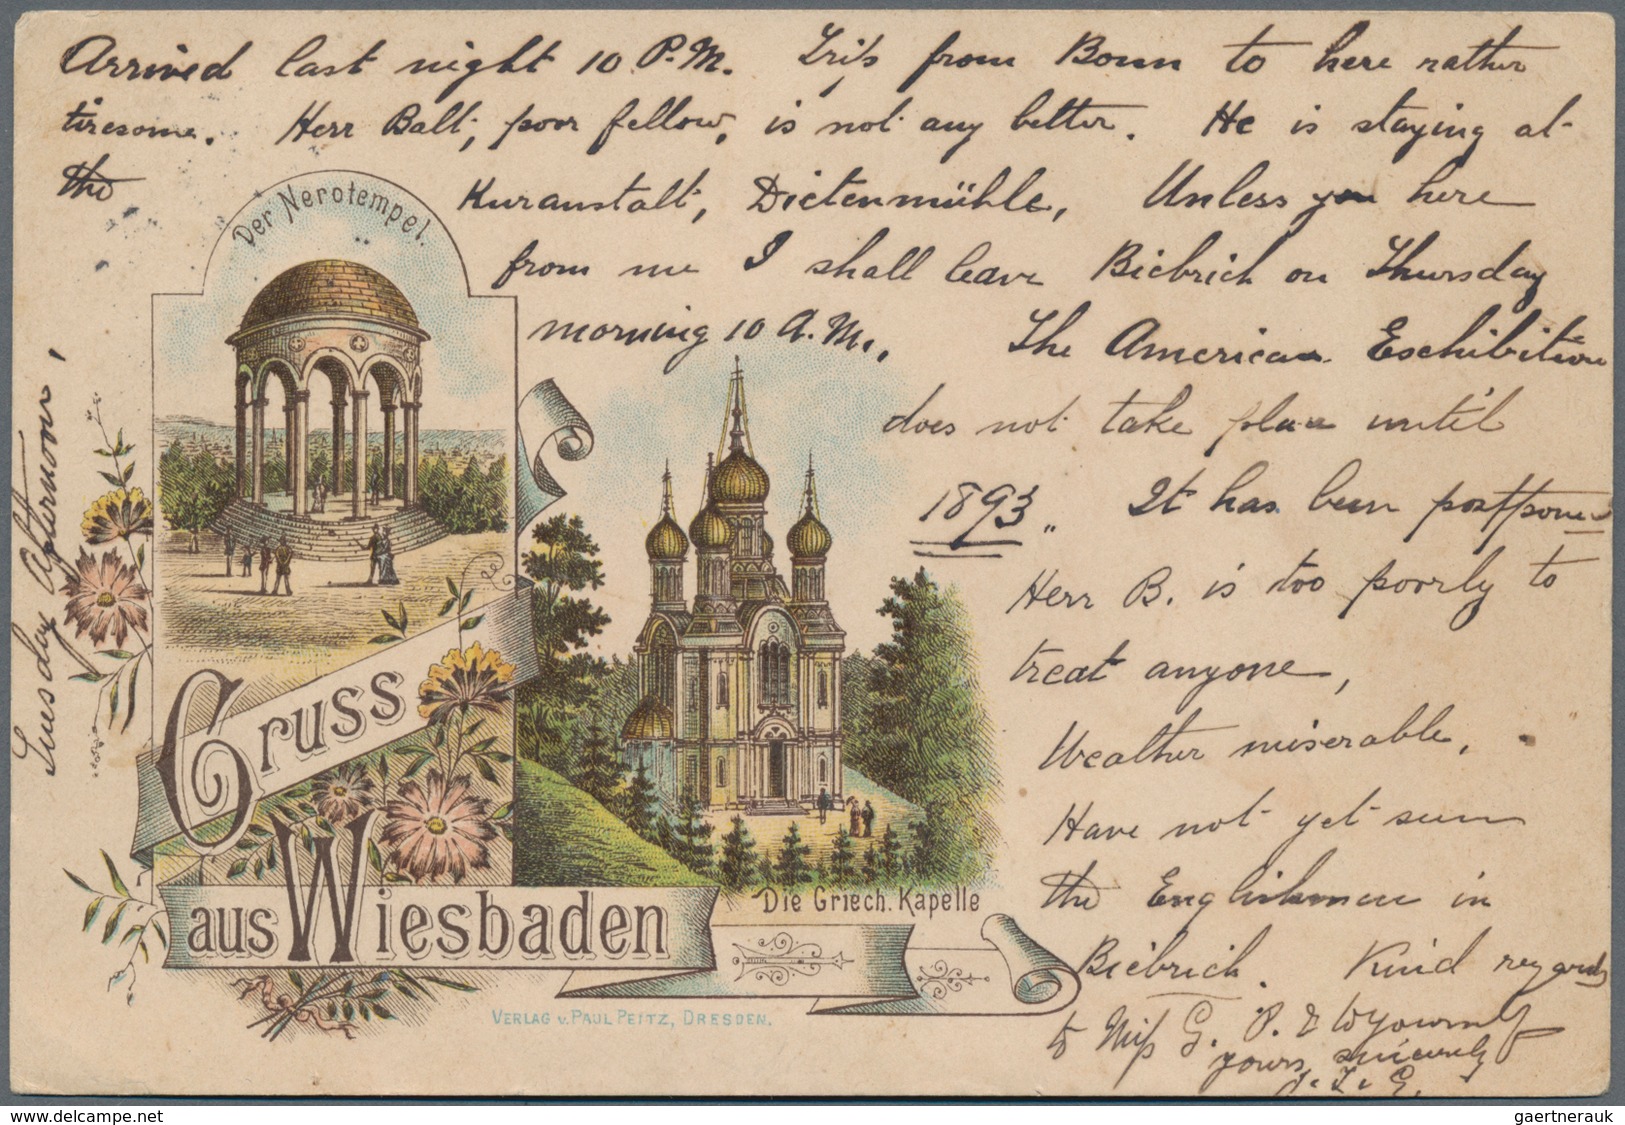 Arrived last night 10 P.M. Trip from Bonn to here rather
tiresome. Herr Balt, poor fellow, is not any better. He is staying at
the Kuranstalt, Dietenmühle, Unless you here
from me I shall leave Biebrich on Thursday
morning 10 A.M.. The American Exhibition
does not take place until
1893.. It has been postponed
Herr B. is too poorly to
treat anyone,
Weather miserable.
Have not yet seen
the Englishman in
Biebrich. Kind regards
to Miss G. P. & to yourself
yours sincerely
Tuesday Afternoon,
Der Nerotempel.
Gruss
aus Wiesbaden
Die Griech. Kapelle
VERLAG v. PAUL PEITZ, DRESDEN.
www.delcampe.net
gaertnerauk